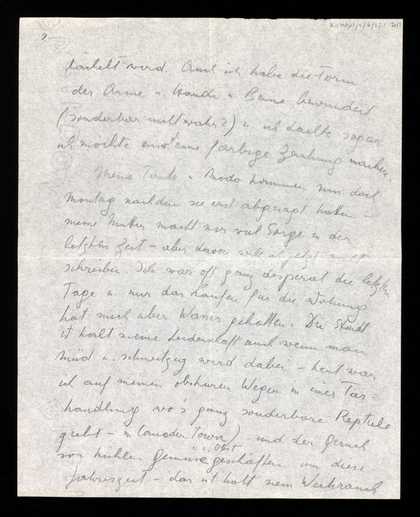 2
wird. Auch ich habe die Form
der Arme u. Hände u. Beine bewundert
(sonderbar nicht wahr?) u. ich dachte sogar
ich möchte eine farbige Zeichnung machen.
Meine Tante u. kommen nun doch
Montag nachdem sie erst abgesagt haben
meine Mutter macht mir viel Sorge in der
letzten Zeit – aber davon will ich jetzt nicht
schreiben. Ich war oft ganz desperat die letzten
Tage u. nur das Laufen für die Wohnung
hat mich über Wasser gehalten. Die Stadt
ist halt meine Leidenschaft auch wenn man
müd u. schmutzig wird dabei – heut war
ich auf meinen obskuren Wegen in einer
handlung wo's ganz sonderbare Reptile
gibt – in Camden Town) und der Geruch
vor kühlen Gemüse u. Obst geschäften um diese
Jahreszeit – das ist halt mein Weihrauch